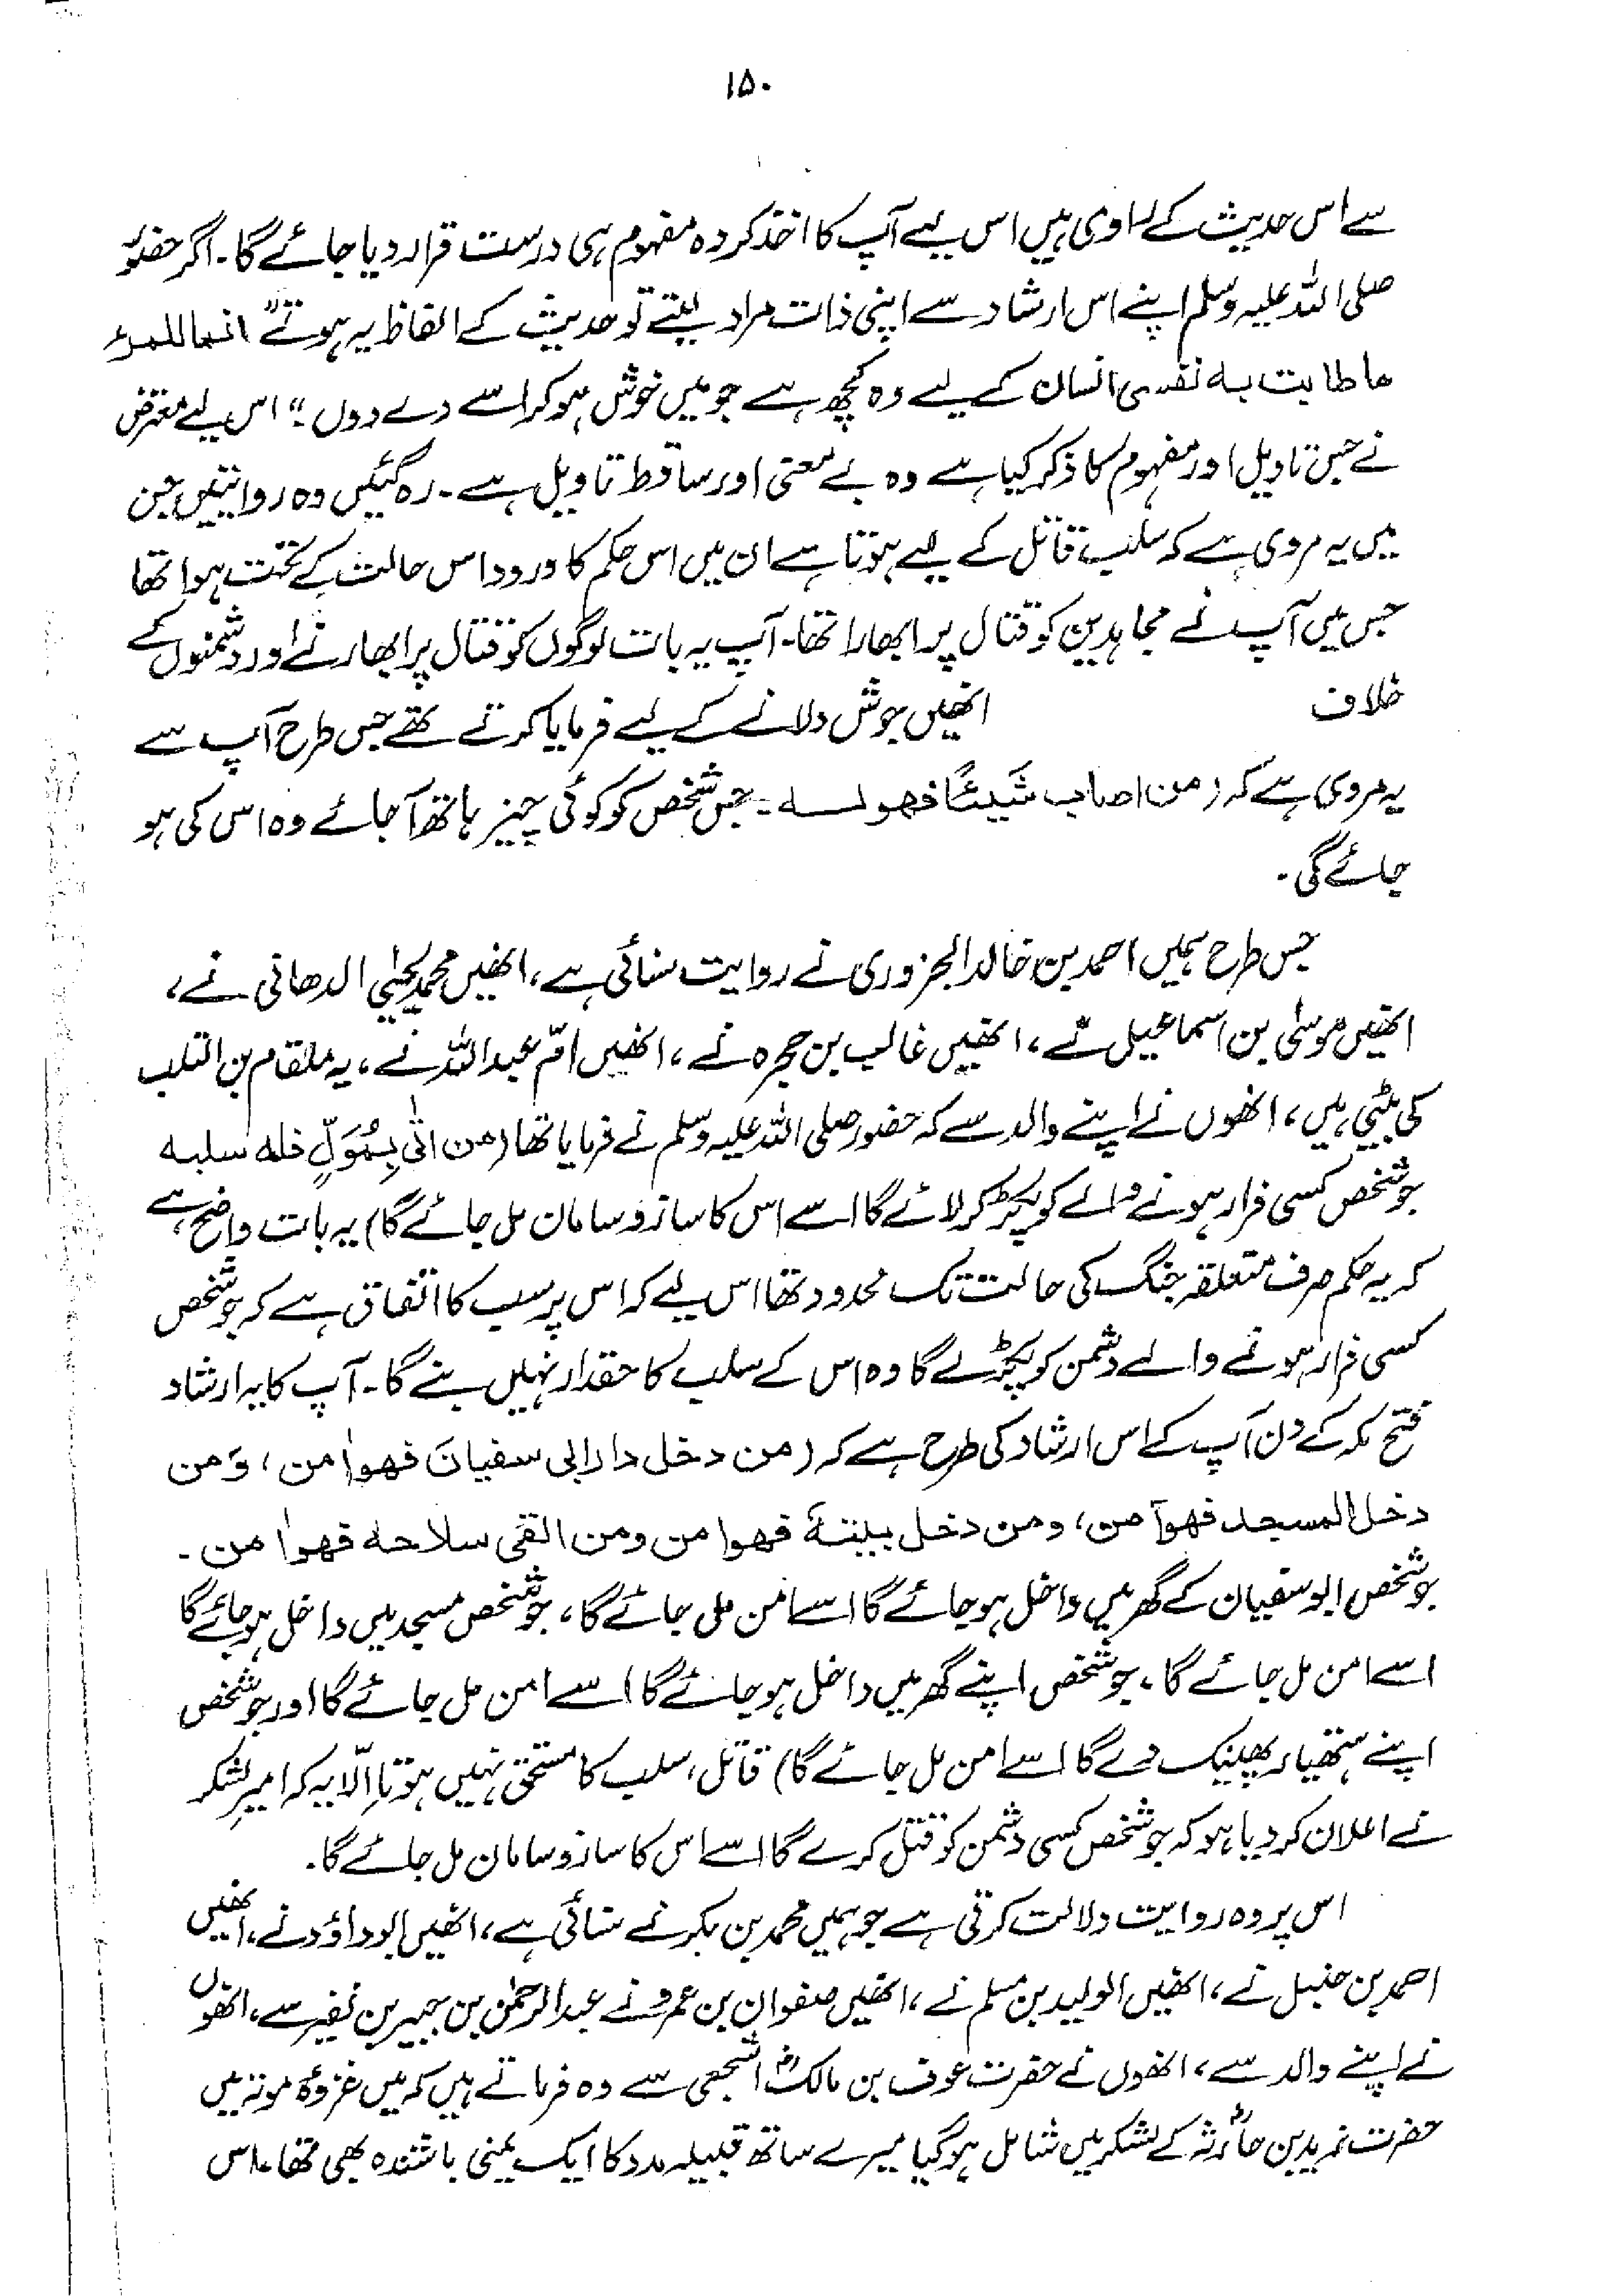 ۱۵۰
سے اس حدیث کے راوی ہیں اس لیے آپ کا اخذ کردہ مفہوم ہی درست قرار دیا جائے گا۔ اگر حضور
صلی اللہ علیہ وسلم اپنے اس ارشاد سے اپنی ذات مراد لیتے تو حدیث کے الفاظ یہ ہوتے" انما للمرء
ما طابت بہ نفسی انسان کے لیے وہ کچھ ہے جو میں خوش ہو کر اسے دے دوں۔" اس لیے معترض
نے جس تاویل اور مفہوم کا ذکر کیا ہے وہ بے معنی اور ساقط تاویل ہے۔ رہ گئیں وہ روایتیں جن
میں یہ مروی ہے کہ سلب قاتل کے لیے ہوتا ہے ان میں اس حکم کا ورود اس حالت کے تحت ہوا تھا
جس میں آپ نے مجاہدین کو قتال پر ابھارا تھا۔ آپ یہ بات لوگوں کو قتال پر ابھارنے اور دشمنوں کے
خلاف انھیں جوش دلانے کے لیے فرمایا کرتے تھے جس طرح آپ سے
یہ مروی ہے کہ (من اصاب شَیئًا فھو لہ ۔ جس شخص کو کوئی چیز ہاتھ آ جائے وہ اسی کی ہو
جائے گی۔
جس طرح ہمیں احمد بن خالد الجزوری نے روایت سنائی ہے، انھیں محمد یحیٰی الدھانی نے،
انھیں موسٰی بن اسماعیل نے، انھیں غالب بن حجرہ نے، انھیں امّ عبداللہ نے، یہ ملقام بن التلب
کی بیٹی ہیں، انھوں نے اپنے والد سے کہ حضور صلی اللہ علیہ وسلم نے فرمایا تھا (من اتٰی بِمُوَلٍّ فلہ سلبہ
جو شخص کسی فرار ہونے والے کو پکڑ کر لائے گا اسے اس کا ساز و سامان مل جائے گا) یہ بات واضح ہے
کہ یہ حکم صرف متعلقہ جنگ کی حالت تک محدود تھا اس لیے کہ اس پر سب کا اتفاق ہے کہ جو شخص
کسی فرار ہونے والے دشمن کو پکڑے گا وہ اس کے سلب کا حقدار نہیں بنے گا۔ آپ کا یہ ارشاد
فتح مکہ کے دن آپ کے اس ارشاد کی طرح ہے کہ (من دخل دار ابی سفیان فھو اٰمن، وَ من
دخل المسجد فھو آمن، و من دخل بیتہٗ فھو اٰمن و من القی سلاحہ فھو اٰمن۔
جو شخص ابو سفیان کے گھر میں داخل ہو جائے گا اسے امن مل جائے گا، جو شخص مسجد میں داخل ہو جائے گا
اسے امن مل جائے گا، جو شخص اپنے گھر میں داخل ہو جائے گا اسے امن مل جائے گا اور جو شخص
اپنے ہتھیار پھینک دے گا اسے امن مل جائے گا) قاتل، سلب کا مستحق نہیں ہوتا اِلّا یہ کہ امیرِ لشکر
نے اعلان کر دیا ہو کہ جو شخص کسی دشمن کو قتل کرے گا اسے اس کا ساز و سامان مل جائے گا۔
اس پر وہ روایت دلالت کرتی ہے جو ہمیں محمد بن بکر نے سنائی ہے، انھیں ابو داؤد نے، انھیں
احمد بن حنبل نے، انھیں الولید بن مسلم نے، انھیں صفوان بن عمرو نے عبدالرحمٰن بن جبیر بن نفیر سے، انھوں
نے اپنے والد سے، انھوں نے حضرت عوف بن مالکؓ اشجعی سے وہ فرماتے ہیں کہ میں غزوۂ موتہ میں
حضرت زید بن حارثہؓ کے لشکر میں شامل ہو گیا میرے ساتھ قبیلہ مدد کا ایک یمنی باشندہ بھی تھا، اس